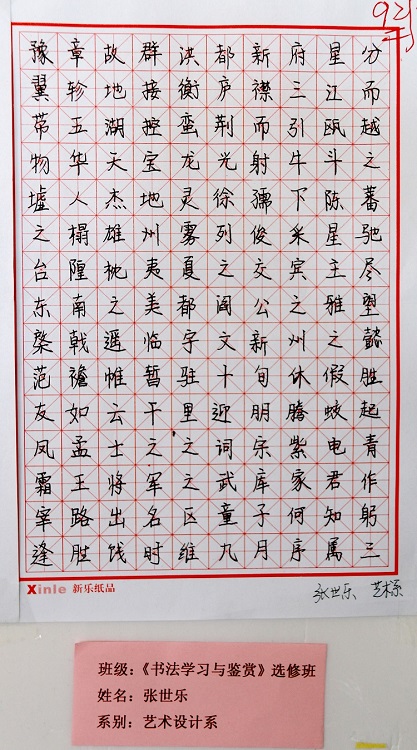 92分
豫章故群洪都新府星分
翼轸地接衡庐襟三江而
带五湖控蛮荆而引瓯越
物华天宝龙光射牛斗之
墟人杰地灵徐孺下陈蕃
之榻雄州雾列俊采星驰
台隍枕夷夏之交宾主尽
东南之美都阎公之雅望
棨戟遥临宇文新州之懿
范襜帷暂驻十旬休假胜
友如云千里迎朋腾蛟起
凤孟士之之词宗紫电青
霜王将军之武库家君作
宰路出名区童子何知躬
逢胜饯时维九月序属三
Xinle 新乐纸品
张世乐 艺术系
班级：《书法学习与鉴赏》选修班
姓名：张世乐
系别：艺术设计系